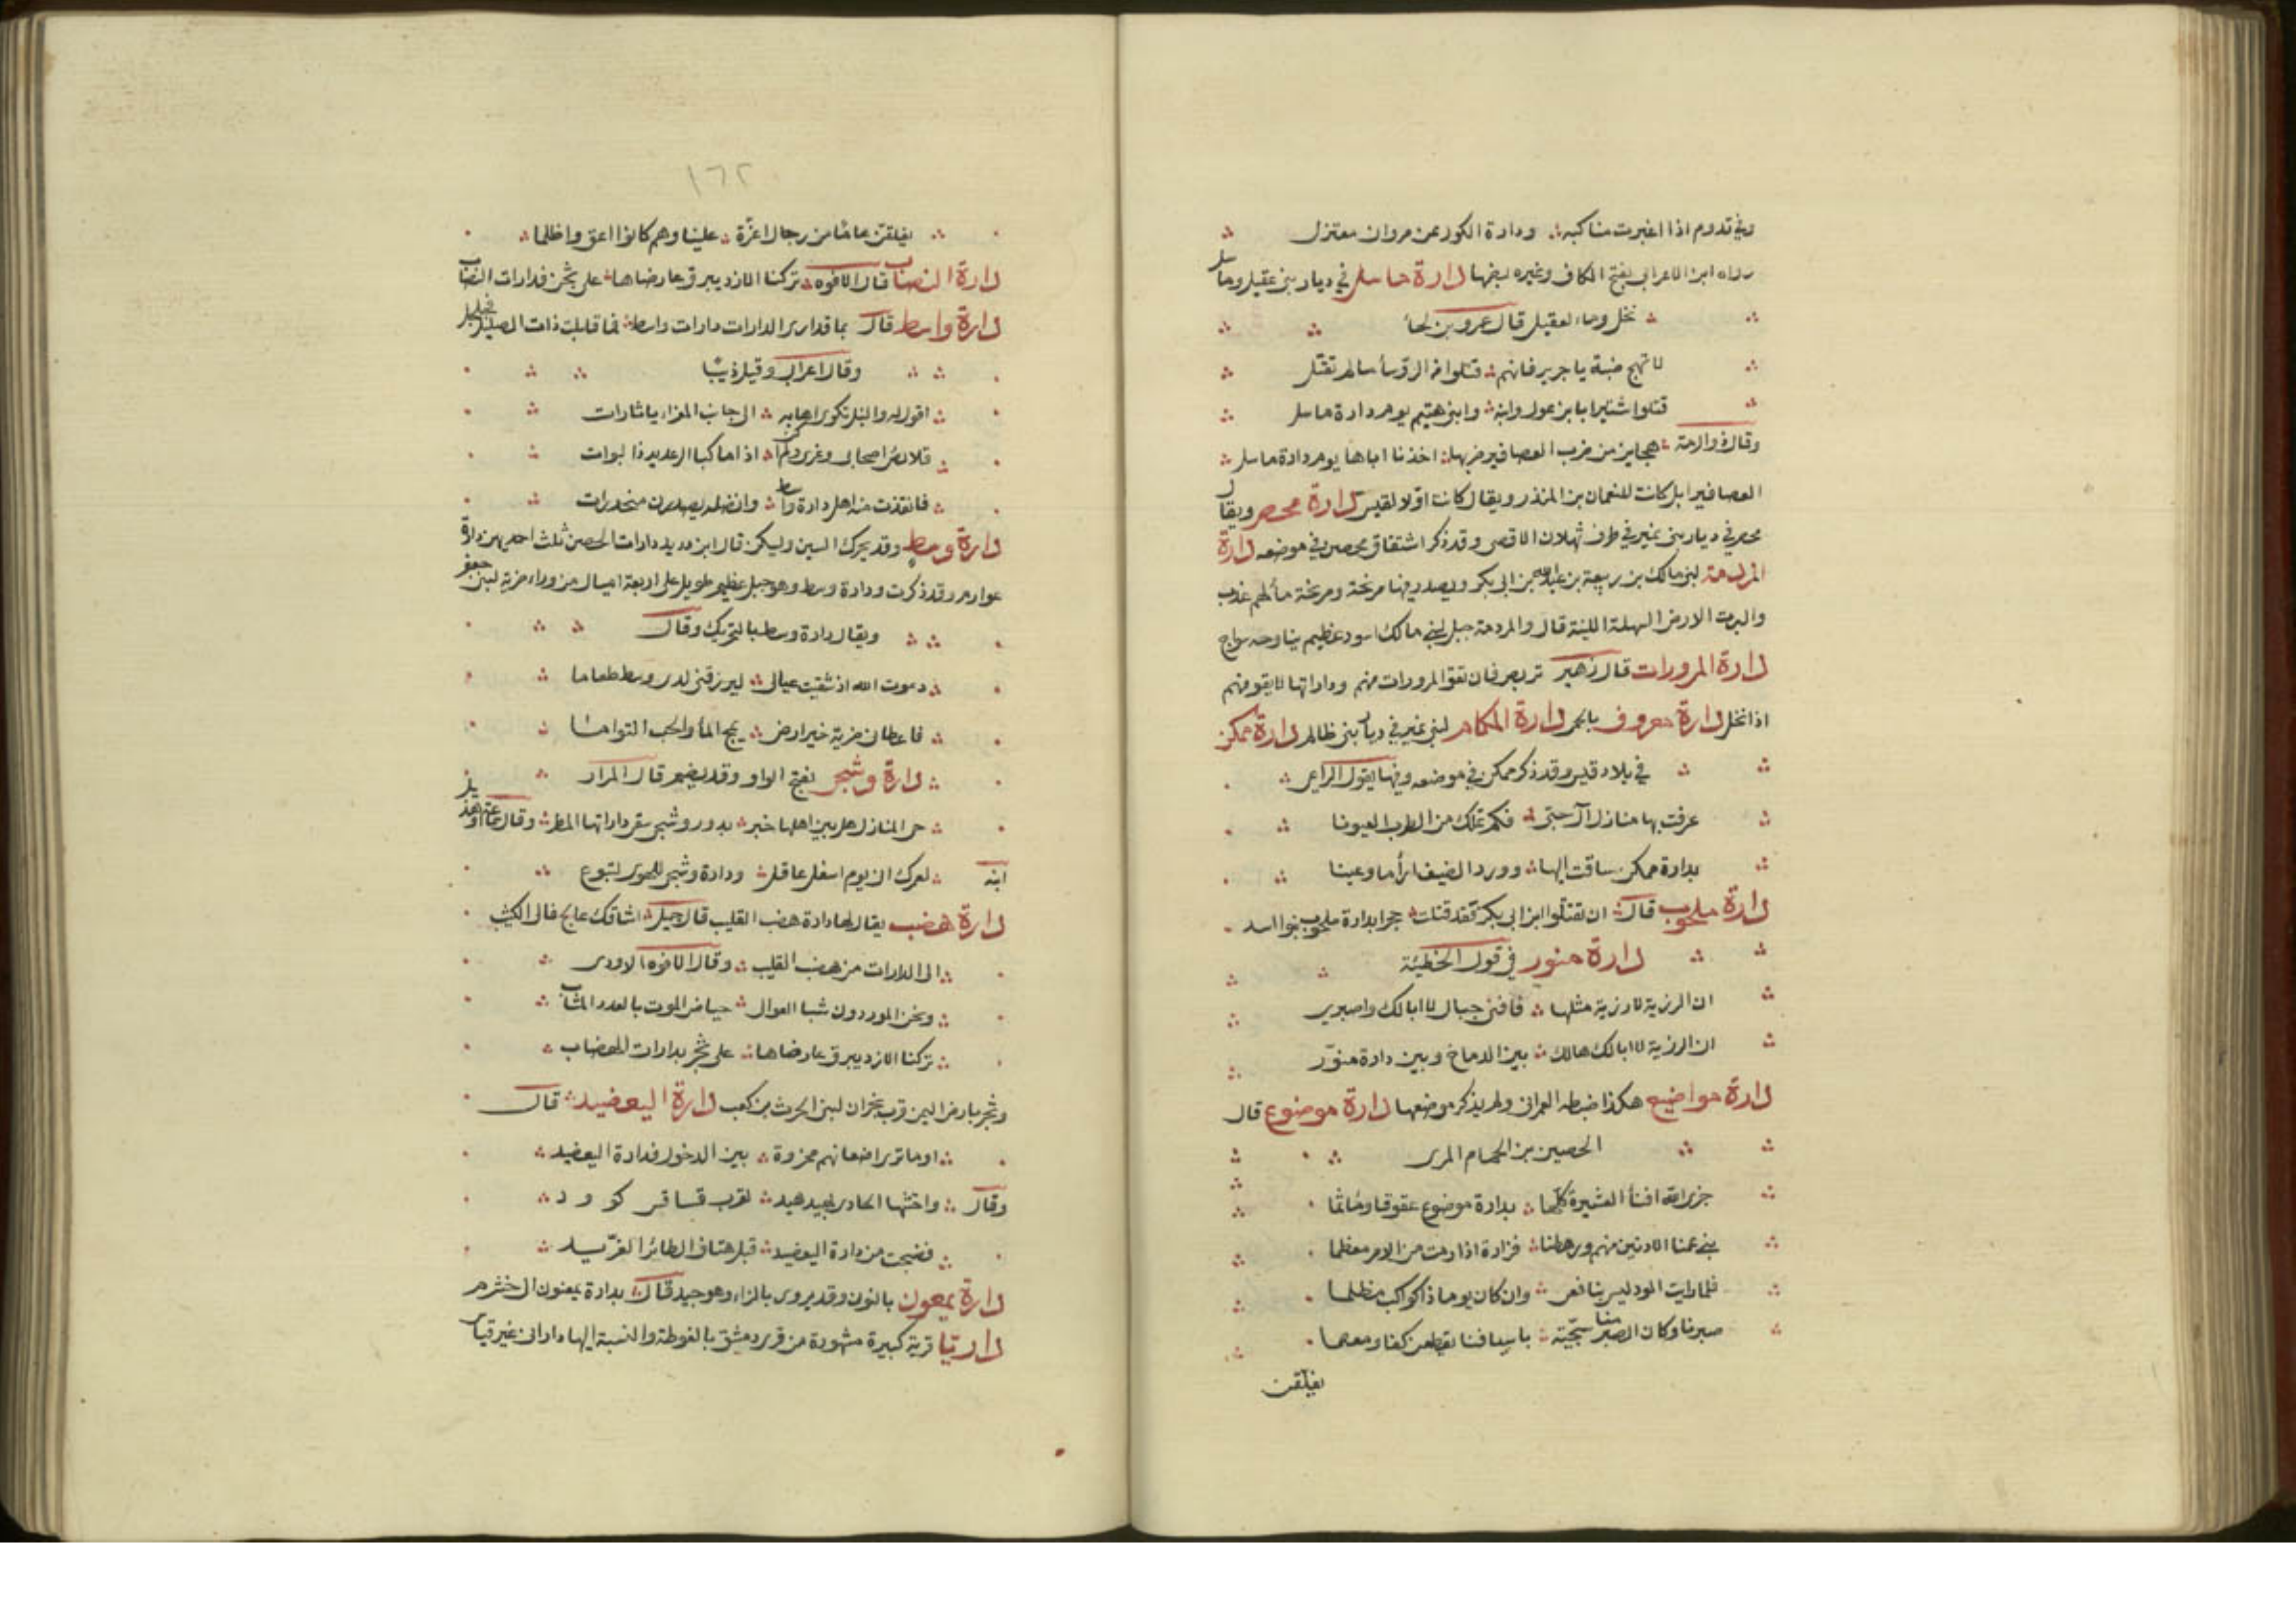 وفي تدوم اذا اغبرت مناكبه ودارة الكور عن مروان معتزل
رواه ابن الاعرابي بفتح الكاف وغيره بضمها دارة ماسل في ديار بني عقيل وماسل
نخل وماء لعقيل قال عمرو بن لجأ
لا تهج ضبة يا جرير فانهم قتلوا من الرؤسأ ما لم تقتل
قتلوا شتيرا بابن غول وابنه وابني هتيم يوم دارة ماسل
وقال ذو الرمة هجاين من ضرب العصافير ضربها اخذنا اباها يوم دارة ماسل
العصافير ابل كانت للنعمان بن المنذر ويقال كانت اولا لقيس دارة محصر ويقال
محصر في ديار بني نمير في طرف ثهلان الاقصى وقد ذكر اشتقاق محصن في موضعه دارة
المردمة لبني مالك بن ربيعة بن عبد الله بن ابي بكر ويصدر فيها مريخة ومريخة مأ لهم عذب
والبرث الارض السهلة اللينة قال والمردمة جبل لبني مالك اسود عظيم يناوحه سواج
دارة المرورات قال زهير تربص فان تقو المرورات منهم وداراتها لا تقو منهم
اذا نخل دارة معروف بالحمى دارة المكامن لبني نمير في ديار بني ظالم دارة ممكن
في بلاد قيس وقد ذكر ممكن في موضعه وفيها يقول الراعي
عرفت بها منازل آل حبي فكم تملك من الطرب العيونا
بدارة ممكن ساقت اليها وورد الضيف ارأما وعينا
دارة ملحوب قال ان تقتلوا ابن ابي بكر فقد قتلت حجرا بدارة ملحوب بنو اسد
دارة منور في قول الحطيئة
ان الرزية لا رزية مثلها فاقني حيال لا ابا لك واصبري
ان الرزية لا ابا لك هالك بين الدماخ وبين دارة منوّر
دارة مواضيع هكذا ضبطه العمراني ولم يذكر موضعها دارة موضوع قال
الحصين بن الحمام المري
جزى الله افنأ العشيرة كلّها بدارة موضوع عقوقا وماثما
بني عمنا الادنين منهم ورهطنا فزارة اذا رمت من الامر معظما
فلما رايت الود ليس بنافعي وان كان يوما ذا كواكب مظلما
صبرنا وكان الصبر منا سجيّة باسيافنا يقطعن كفا ومعصما
يفلّقن
١٦٢
يفلقن هاما من رجال اعزة علينا وهم كانوا اعق واظلما
دارة النصاب قال الافوه تركنا الازد يبرق عارضاها على ثجر فدارات النصاب
دارة واسط قال بما قد ارى الدارات دارات واسط فما قابلت ذات الصليل فجلجل
وقال اعرابي وقيل ذيبا
اقول له والنبل تكوى اهابه الى جانب المعزا يا ثارات
قلائص اصحابي وغيري اذا ما كبا الرعديد ذا لبوات
فانقذت منه اهل دارة واسط وانضله يصدرن منحدرات
دارة وسط وقد يحرك السين وليكن قال ابن دريد دارات الحصن ثلث احديهن دارة
عوارم وقد ذكرت ودارة وسط وهو جبل عظيم طويل على اربعة اميال من وراء ضرية لبني جعفر
ويقال دارة وسط بالتحريك وقال
دعوت الله اذ شقيت عيالي ليرزقني لدى وسط طعاما
فاعطاني ضرية خير ارض تمج المأ والحب التواما
دارة وشجي بفتح الواو وقد يضم قال المرار
حي المنازل هل بين اهلها خبر بدور وشجى سقى داراتها المطر وقال سماعة او هذيل
ابنه لعمرك اني يوم اسفل عاقل ودارة وشجى الهوى لتبوع
دارة هضب يقال لها دارة هضب القليب قال جميل اشاقك عالج فالى الكثيب
الى الدارات من هضب القليب وقال الافوه الاودي
ونحن الموردون شبا العوالي حياض الموت بالعدد المثاب
تركنا الازد يبرق عارضاها على ثجر بدارات الهضاب
وثجر بارض اليمن قرب نجران لبني الحرث بن كعب دارة اليعضيد قال
اوما ترى اضعانهم مجزوة بين الدخول فدارة اليعضيد
وقال واحتثها الحادي بهيد هيد لقرب قساقس كوود
فصبحت من دارة اليعضيد قبل هتاف الطائر الغرّيد
دارة يمعون بالنون وقد يروى بالزاء وهو جيد قال بدارة يمعون الى خشرم
داريّا قرية كبيرة مشهورة من قرى دمشق بالغوطة والنسبة اليها داراني على غير قياس